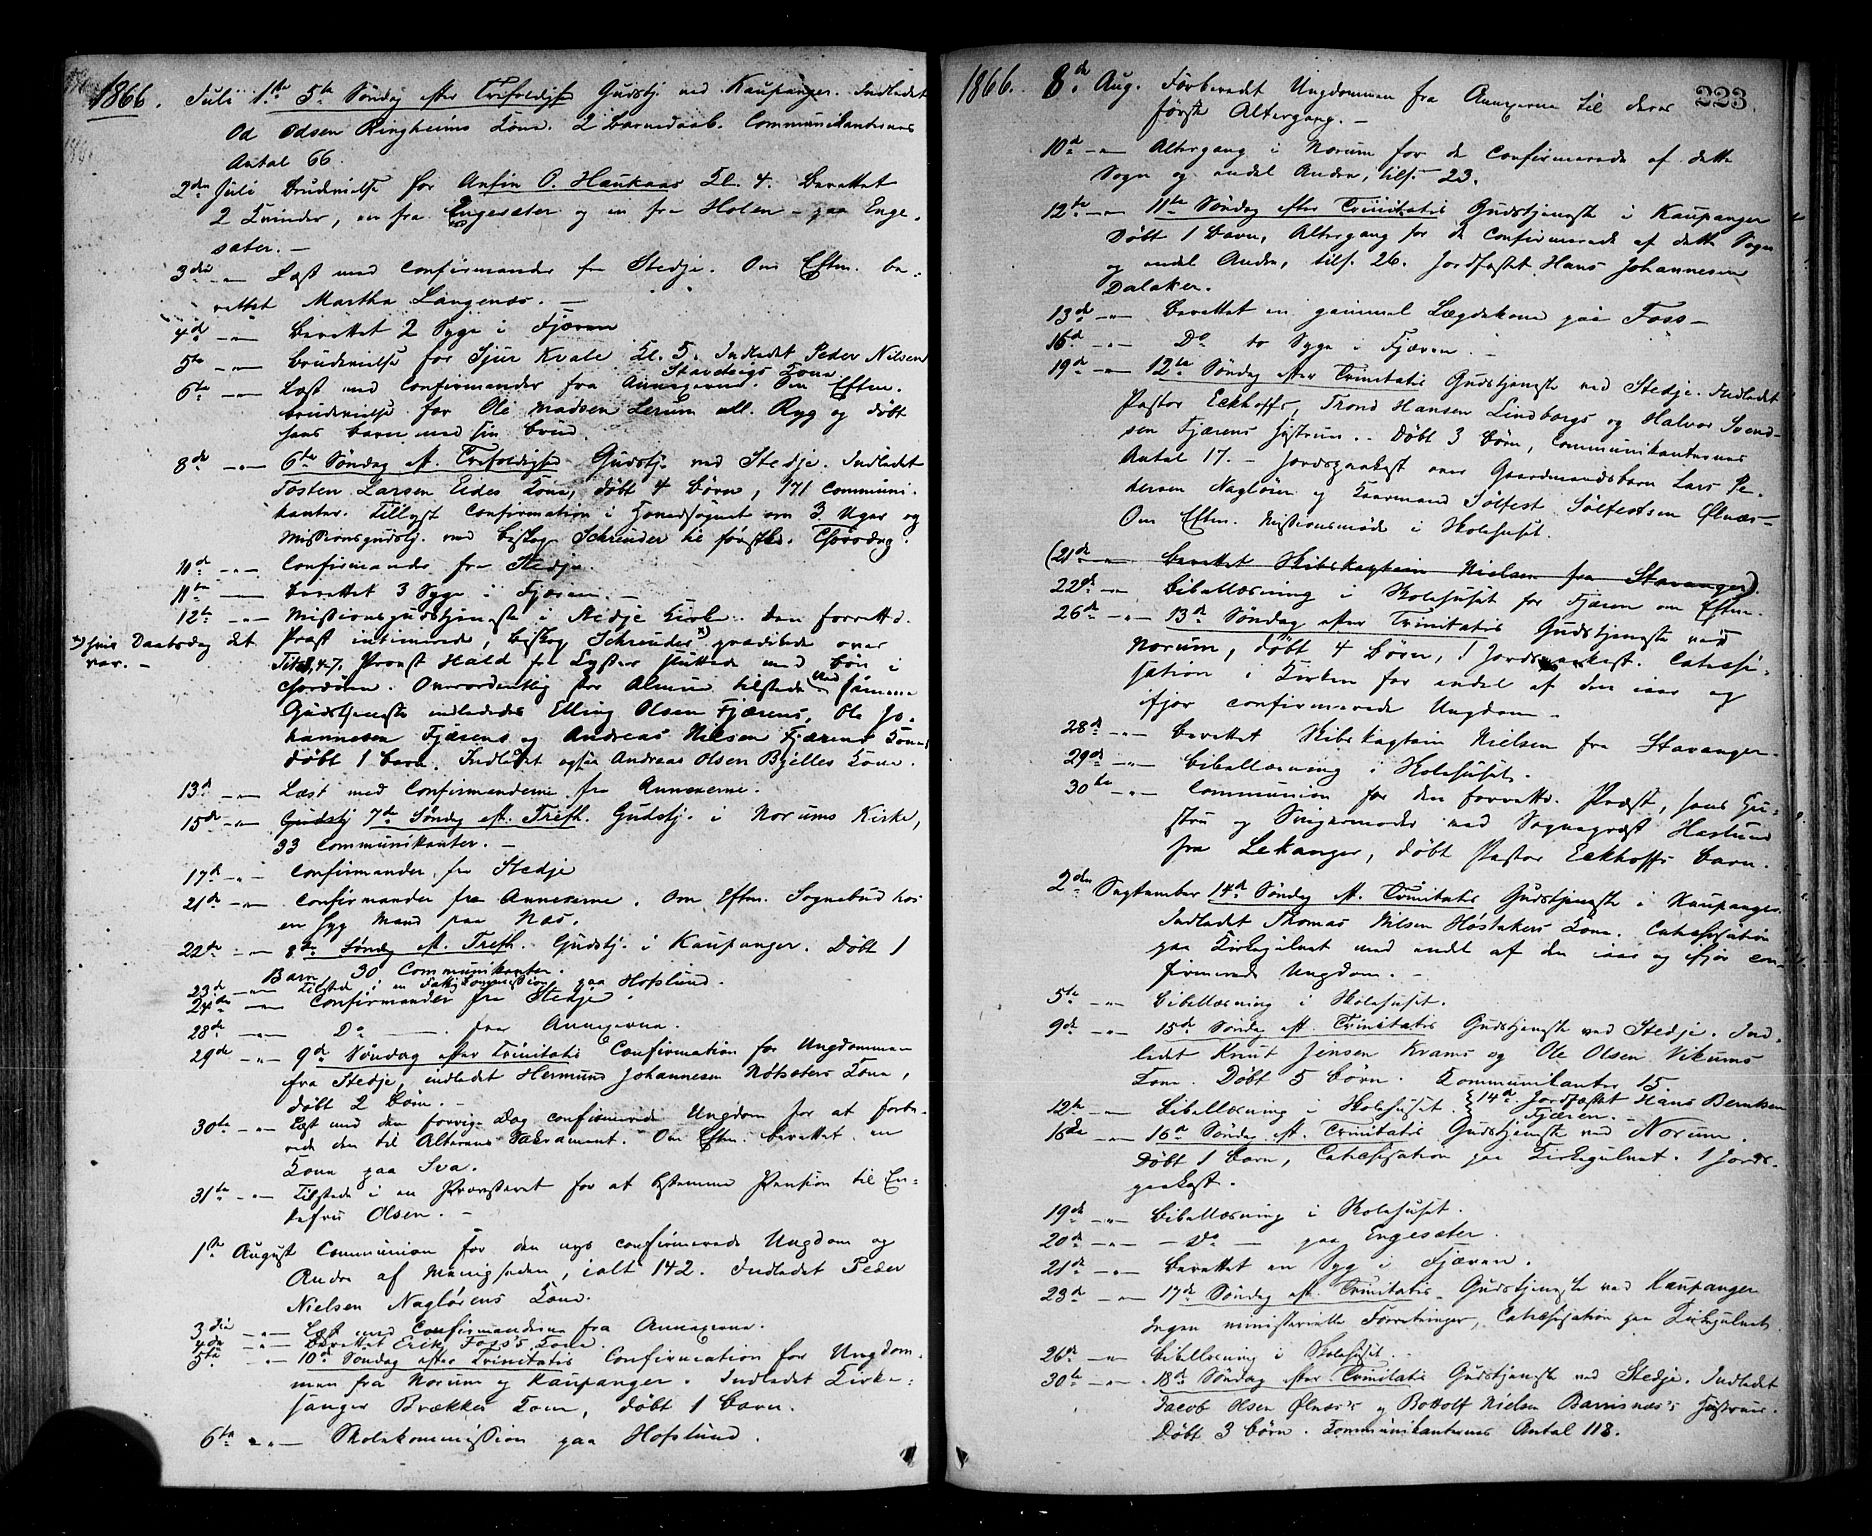 1866. Juli 1ste 5te Søndag efter Trefoldighed Gudstj. ved Kaupanger. Indledet
Od Odsen Ringheims Kone. 2 Barnedaab. Communikanternes
Antal 66.
2den Juli Brudevielse for Anfin O. Haukaas Kl. 4. Berettet
2 Kvinder, en fra Engesæter og en fra Holen – paa Enge-
sæter. –
3die –„– Læst med Confirmander fra Stedje. Om Eftm. be-
rettet Martha Langenæs. –
4d –„– Berettet 2 Syge i Fjæren
5te –„– Brudevielse for Sjur Kvale Kl. 5. Indledet Peder Nilsen
Stavdsegs Kone.
6te –„– Læst med Confirmander fra Annexerne. Om Eftm.
brudevielse for Ole Madsen Lerum ell. Ryg og døbt
hans Barn med sin Brud.
8de –„– 6te Søndag eft. Trefoldighed Gudstj. ved Stedje. Indledet
Tosten Larsen Eides Kone, døbt 4 Børn, 171 Communi-
kanter. Tillyst Confirmation i Hovedsognet om 3 Uger og
Missionsgudstj. ved Biskop Schreuder til førstk. Thorsdag.
10d –„– Confirmander fra Stedje.
11te –„– Berettet 3 Syge i Fjæren. –
12te –„– Missionsgudstjeneste i Stedje Kirke. Den forrettd.
Præst intimerede, Biskop Schreuder x) prædikede over
x) hvis Daabsdag det
var. –
Tit. 3,4-7. Provst Hald fra Lyster sluttede med Bøn i
Chordøren. Overordentlig stor Almue tilstede. Ved samme
Gudstjeneste indlededes Elling Olsen Fjærens, Ole Jo-
hannesen Fjærens og Andreas Nilsen Fjærens Koner
døbt 1 Barn. Indledet ogsaa Andreas Olsen Bjelles Kone.
13d –„– Læst med Confirmanderne fra Annexerne.
15de –„– Gudstj 7de Søndag eft. Trefh. Gudstj. i Norums Kirke,
33 Communikanter. –
17d –„– Confirmander fra Stedje
21de –„– Confirmander fra Annexerne. Om Eftm. Sognebud hos
en syg Mand paa Næs.
22de –„– 8de Søndag eft. Trefh. Gudstj. i Kaupanger. Døbt 1
Barn, 30 Communikanter.
23d –„– Tilstede i en Fattigkommission paa Hofslund.
24de –„– Confirmander fra Stedje.
28de –„– Do –– fra Annexerne.
29de –„– 9d Søndag efter Trinitatis Confirmation for Ungdommen
fra Stedje, indledet Hermund Johannesen Nøtsæters Kone,
døbt 2 Børn. –
30te –„– Læst med den forrige Dag confirmerede Ungdom for at forbe-
rede den til Alterens Sakrament. Om Eftm. berettet en
Kone paa Sva.
31te –„– Tilstede i en Provsteret for at bestemme Pension til En-
kefru Olsen. –
1ste August Communion for den nys confirmerede Ungdom og
Andre af Menigheden, ialt 142. Indledet Peder
Nielsen Naglørens Kone.
3die –„– Læst med Confirmanderne fra Annexerne.
4de –„– Berettet Erik Foss's Kone
5te –„– 10d Søndag efter Trinitatis Confirmation for Ungdom-
men fra Norum og Kaupanger. Indledet Kirke-
sanger Brækkes Kone, døbt 1 Barn.
6te –„– Skolekommission paa Hofslund.
223.
1866. 8d Aug. Forberedt Ungdommen fra Annexerne til deres
første Altergang. –
10d –„– Altergang i Norum for de Confirmerede af dette
Sogn og endel Andre, tils. 23.
12te –„– 11te Søndag efter Trinitatis Gudstjeneste i Kaupanger
Døbt 1 Barn, Altergang for de Confirmerede af dette Sogn
og endel Andre, tils. 26. Jordfæstet Hans Johannesen
Dalaker.
13d –„– Berettet en gammel Lægdekone paa Foss –
16d –„– Do to Syge i Fjæren. –
19d –„– 12te Søndag efter Trinitatis Gudstjeneste ved Stedje. Indledet
Pastor Eckhoffs, Trond Hansen Lindborgs og Halvor Svend-
sen Fjærens Hustruer. – Døbt 3 Børn, Communikanternes
Antal 17. – Jordspaakast over Gaardmandsbarn Lars Pe-
dersen Nagløren og Kaarmand Sølfest Sølfestsen Ølnæs –
Om Eftm. Missionsmøde i Skolehuset.
(21de –„– Berettet Skibskaptein Nielsen fra Stavanger)
22de –„– Bibellæsning i Skolehuset for Fjæren om Eftm.
26de –„– 13d Søndag efter Trinitatis Gudstjeneste ved
Norum, døbt 4 Børn, 1 Jordspaakast. Catechi-
sation i Kirken for endel af den iaar og
ifjor confirmerede Ungdom –
28de –„– Berettet Skibskaptein Nielsen fra Stavanger –
29de –„– Bibellæsning i Skolehuset.
30te –„– Communion for den forrettd. Præst, hans Hu-
stru og Svigermoder ved Sognepræst Haslund
fra Lekanger, døbt Pastor Eckhoffs Barn.
2den September 14d Søndag eft. Trinitatis Gudstjeneste i Kaupanger.
Indledet Thomas Nilsen Høstakers Kone. Catechisation
paa Kirkegulvet med endel af den iaar og ifjor con-
firmerede Ungdom. –
5te –„– Bibellæsning i Skolehuset.
9de –„– 15d Søndag eft. Trinitatis Gudstjeneste ved Stedje. Ind-
ledet Knut Jensen Kvams og Ole Olsen Vikums
Kone. Døbt 5 Børn. Kommunikanter 15.
12te –„– Bibellæsning i Skolehuset. { 14d Jordfæstet Hans Berntsen
Fjæren. –
16de –„– 16d Søndag eft. Trinitatis Gudstjeneste ved Norum.
Døbt 1 Barn, Catechisation paa Kirkegulvet. 1 Jords-
paakast.
19de –„– Bibellæsning i Skolehuset.
20de –„– – Do – paa Engesæter.
21de –„– Berettet en Syg i Fjæren.
23d –„– 17de Søndag eft. Trinitatis. Gudstjeneste ved Kaupanger
Ingen ministerielle Forretninger, Catechisation paa Kirkegulvet.
26de –„– Bibellæsning i Skolehuset.
30te –„– 18de Søndag efter Trinitatis Gudstjeneste ved Stedje. Indledet
Jacob Olsen Ølnæs's og Bottolf Nielsen Barsnæs's Hustruer.
Døbt 3 Børn. Kommunikanternes Antal 118.